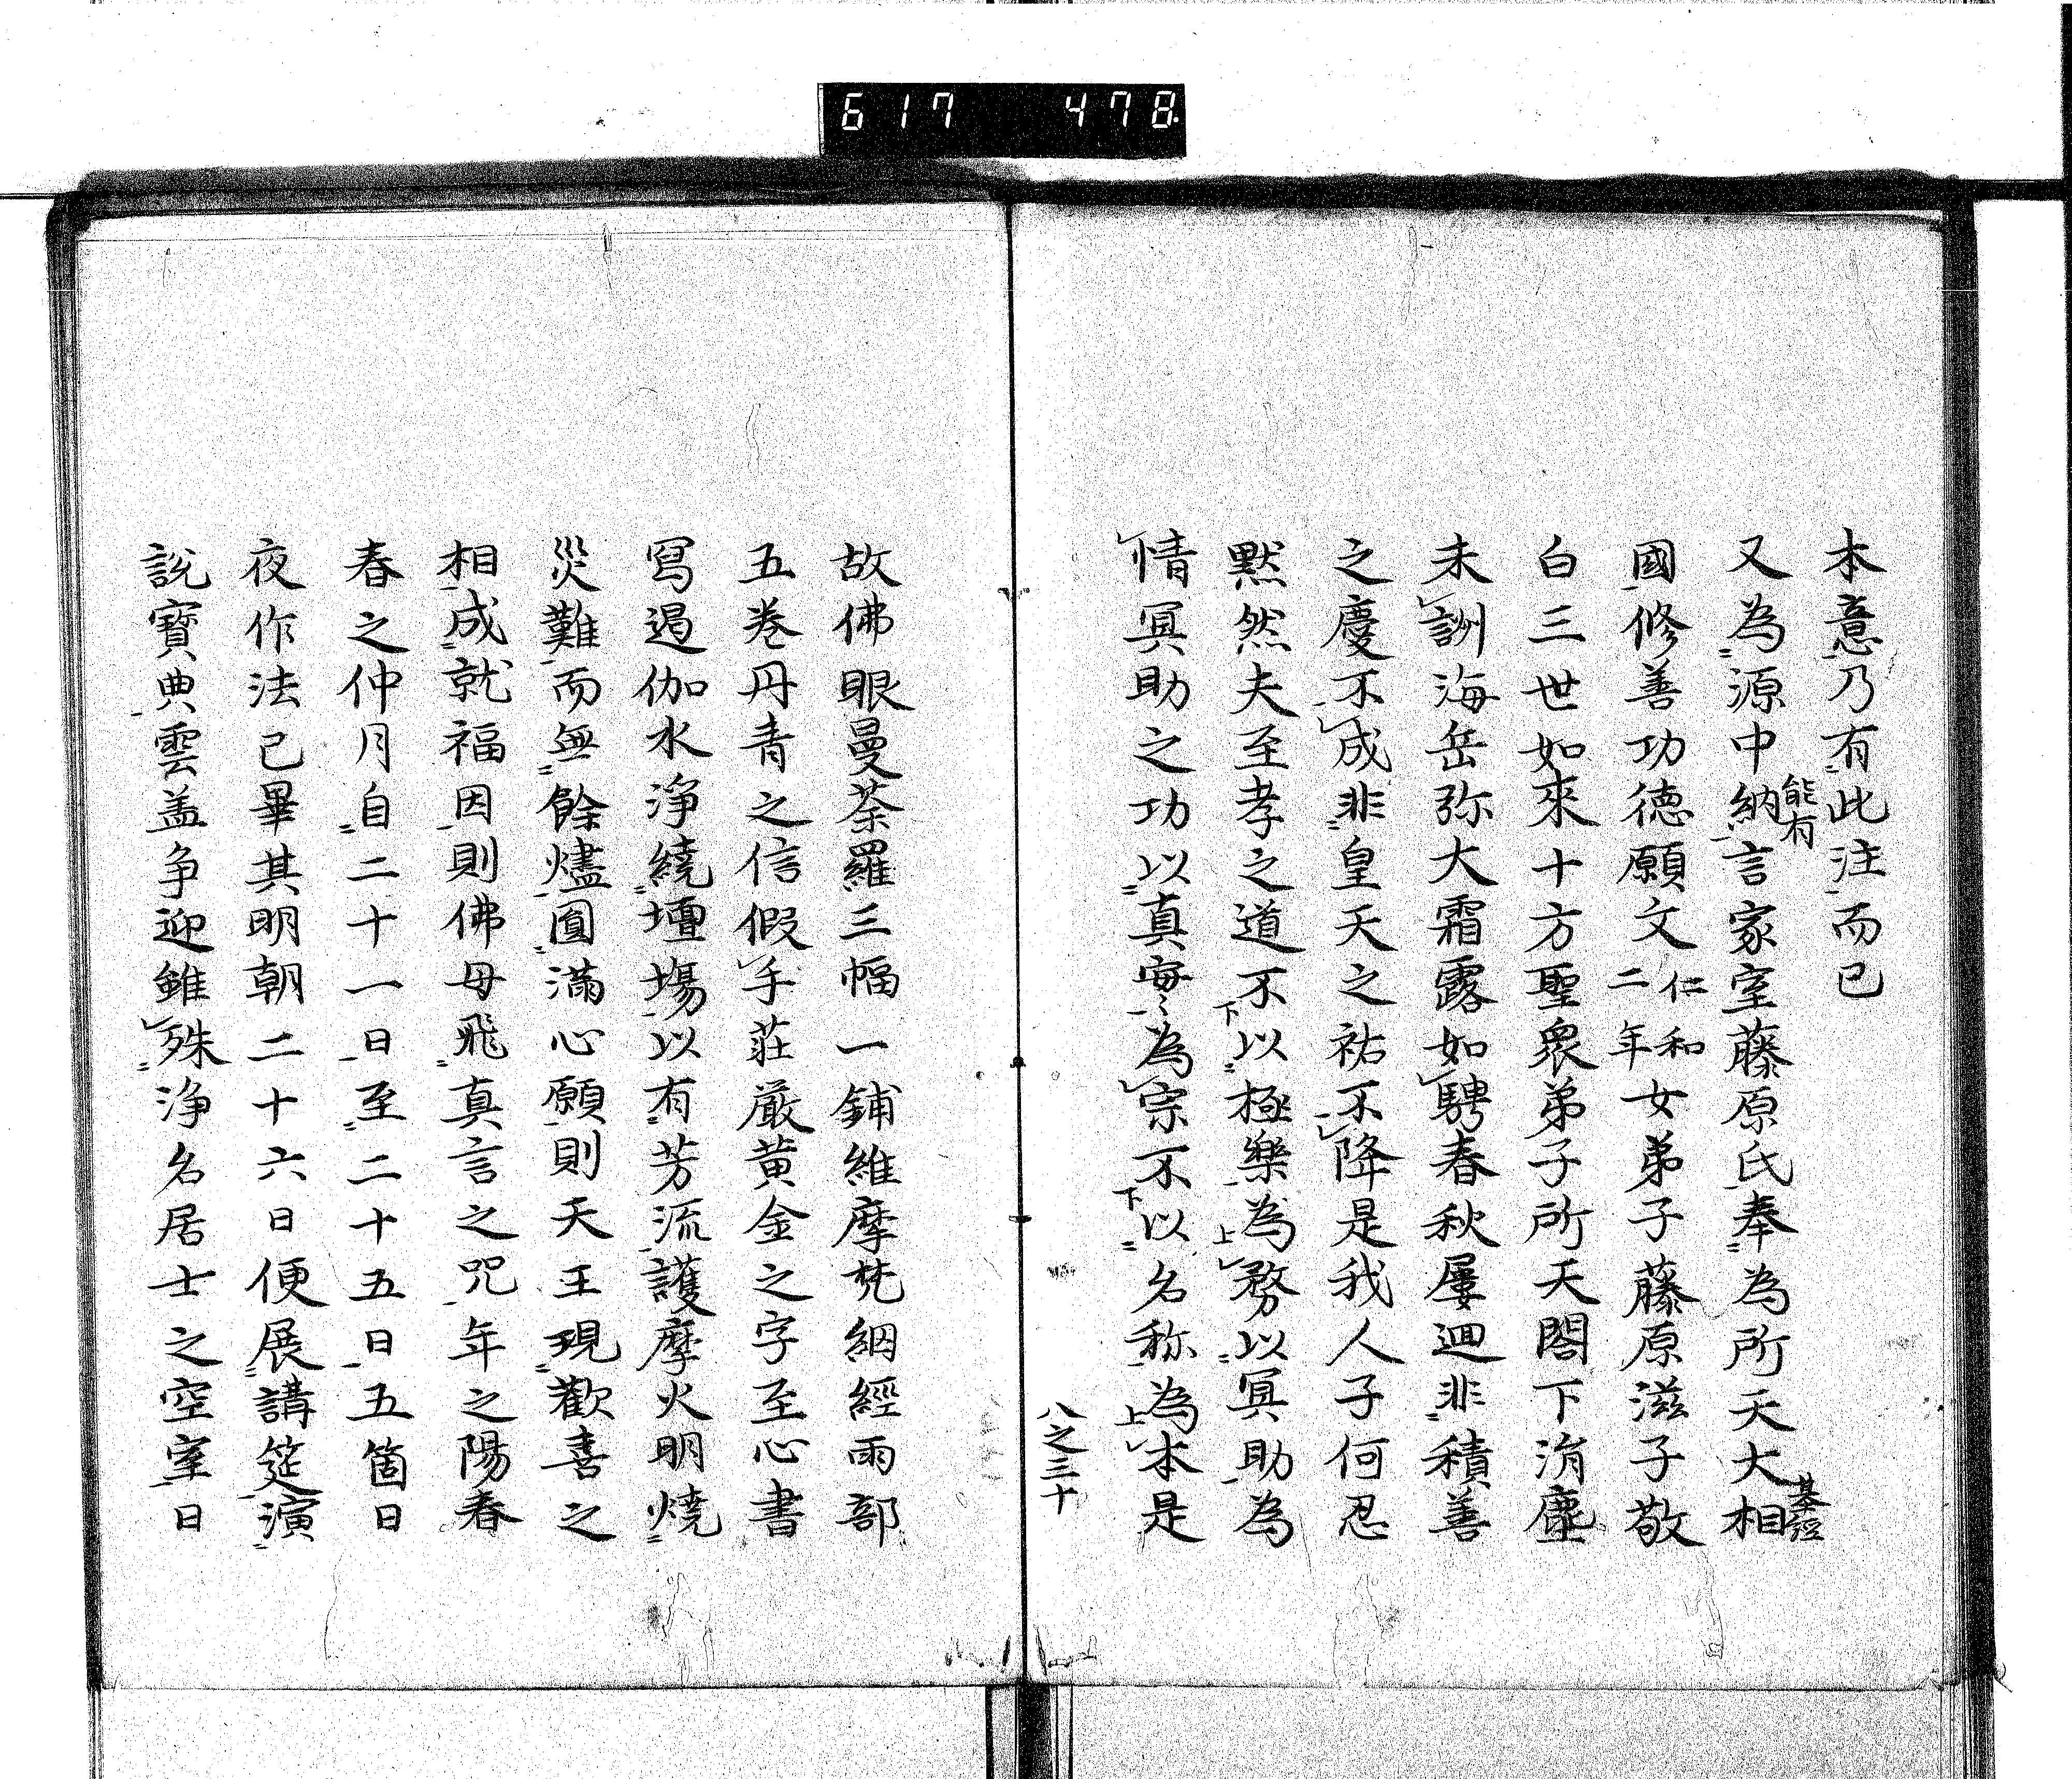 617 478
本意乃有此注而已
又為源中納言家室藤原氏奉為所天大相
能有
基經
國修善功徳願文仁和二年女弟子藤原滋子敬
白三世如來十方聖衆弟子所天閤下涓塵
未詶海岳弥大霜露如騁春秋屢廻非積善
之慶不成非皇天之祐不降是我人子何忍
黙然夫至孝之道不以極樂為務以冥助為
下 上
情冥助之功以真寔為宗不以名称為本是
下 上
八之三十
故佛眼曼荼羅三幅一鋪維摩梵網經両部
五巻丹青之信假手荘厳黄金之字至心書
寫遏伽水浄繞壇場以有芳流護摩火明焼
災難而無餘燼圓滿心願則天王現歡喜之
相成就福因則佛母飛真言之咒年之陽春
春之仲月自二十一日至二十五日五箇日
夜作法已畢其明朝二十六日便展講筵演
說寳典雲盖争迎雖殊浄名居士之空室日